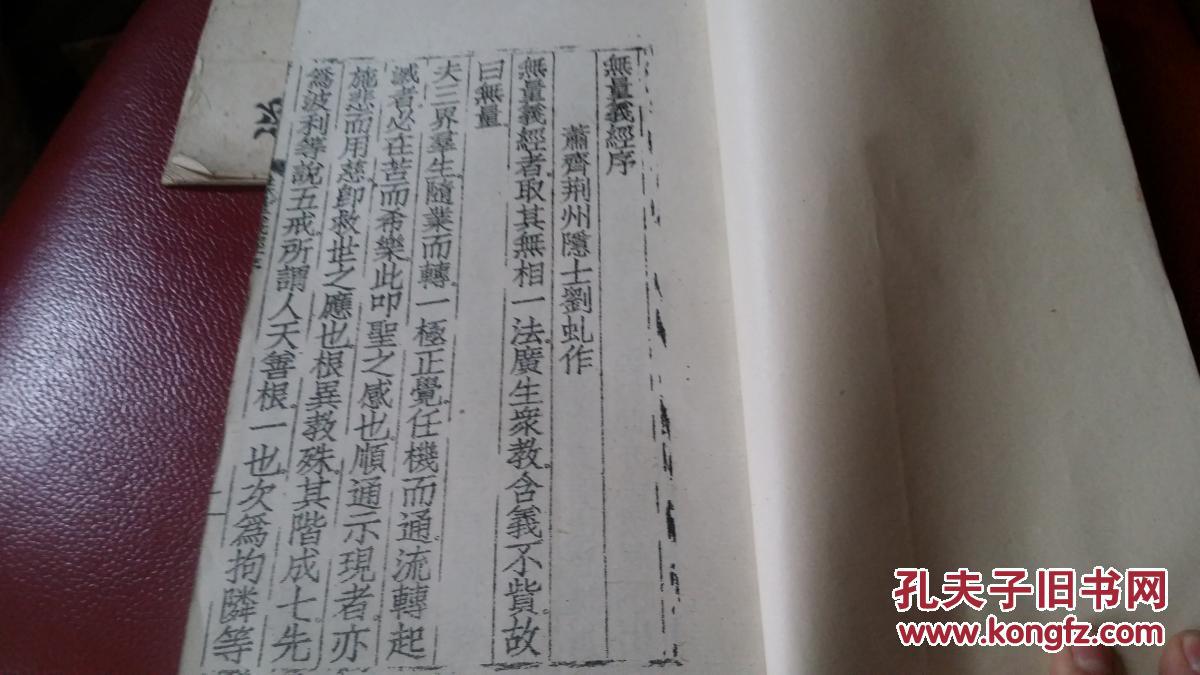 無量義經序
蕭齊荆州隱士劉虬作
無量義經者取其無相一法廣生衆教含義不貲故
曰無量
夫三界羣生隨業而轉一極正覺任機而通流轉起
滅者必在苦而希樂此叩聖之感也順通示現者亦
施悲而用慈卽救世之應也根異教殊其階成七先
爲波利等說五戒所謂人天善根一也次爲拘隣等
孔夫子旧书网
www.kongfz.com